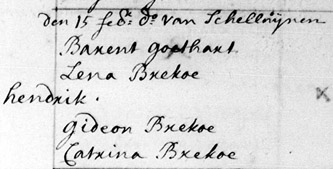 den 15 feb:r d:o van Schelluijnen
Barent goethart
Lena Brekoe
hendrik .
Gideon Brekoe
Catrina Brekoe